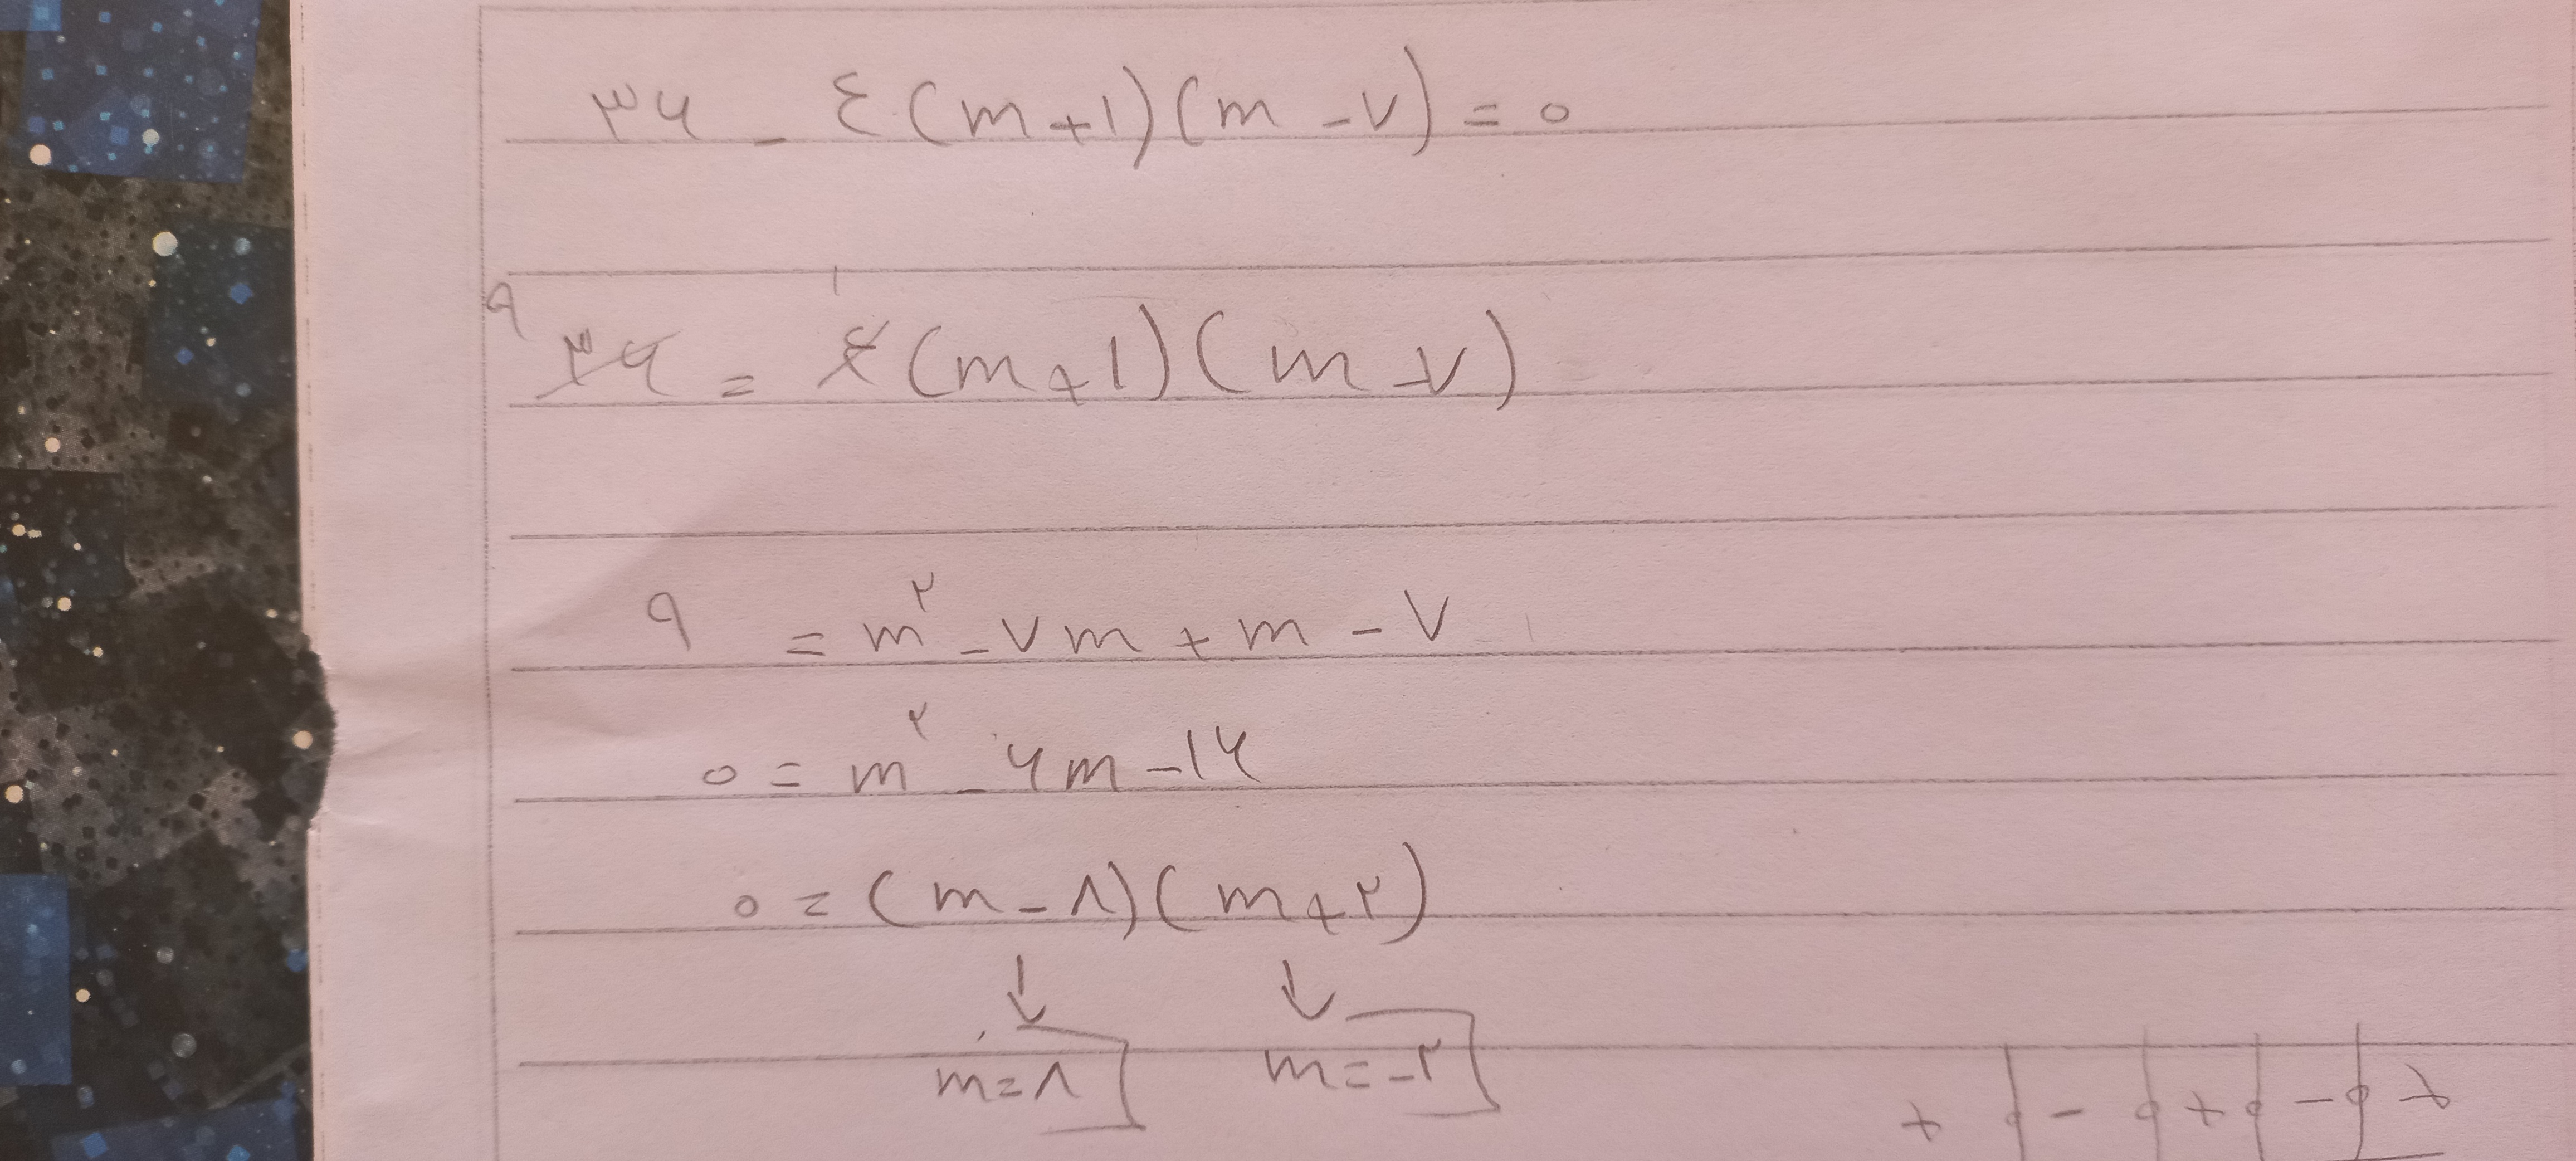 ۳۶ - ٤(m+۱)(m-۷)=۰
۹ ۱
۳۶ = ٤(m+۱)(m-۷)
۹ = m^۲ -۷m + m - ۷
۰ = m^۲ - ۶m - ۱۶
۰ = (m-۸)(m+۲)
↓ ↓
m=۸ m=-۲
+ - + - +